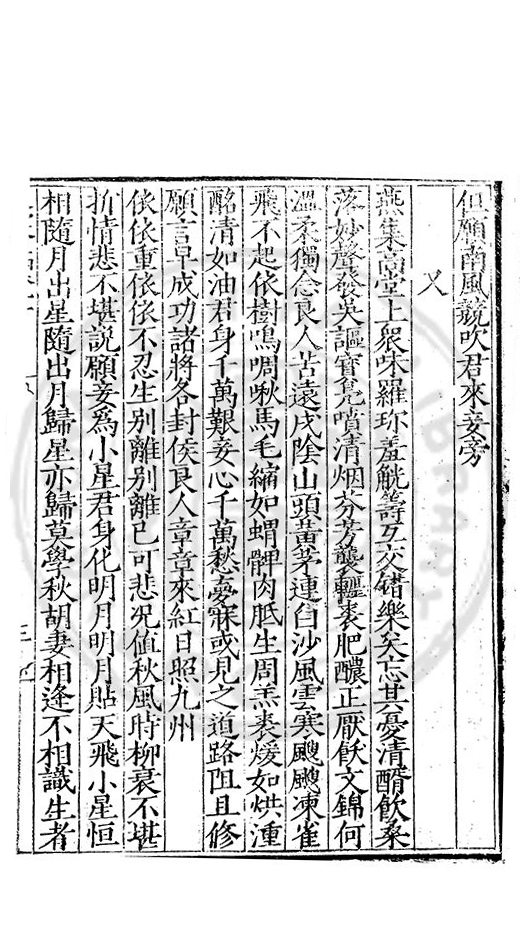 但願南風競吹君來妾旁
又
燕集高堂上衆味羅珍羞觥籌互交錯樂矣忘其憂清醑飲桑
落妙聲發吳謳寶鳧噴清烟芬芳襲軀裘肥醲正厭飫文錦何
溫柔獨念良人苦遠戍陰山頭黃茅連白沙風雲寒颼颼凍雀
飛不起依樹鳴啁啾馬毛縮如蝟髀肉胝生周羔裘煖如烘湩
酩清如油君身千萬艱妾心千萬愁憂寐或見之道路阻且修
願言早成功諸將各封侯良人章章來紅日照九州
依依重依依不忍生别離别離已可悲况值秋風時柳衰不堪
折情悲不堪說願妾爲小星君身化明月明月貼天飛小星恒
相隨月出星隨出月歸星亦歸莫學秋胡妻相逢不相識生者